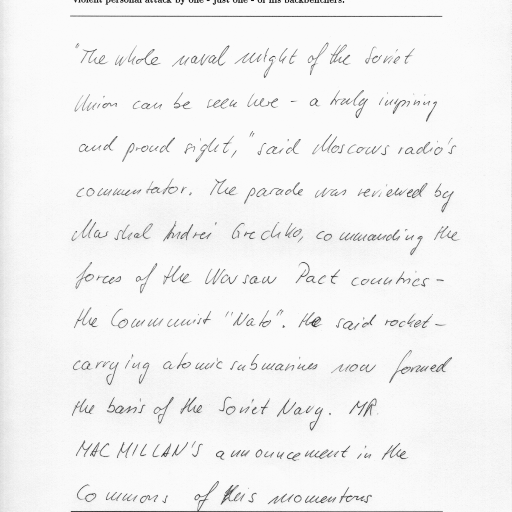 violent personal attack by one - just one - of his backbenchers.
"The whole naval might of the Soviet
Union can be seen here - a truly inspiring
and proud sight," said Moscows radio's
commentator. The parade was reviewed by
Marshal Andrei Grechko, commanding the
forces of the Warsaw Pact countries -
the Communist "Nato". He said rocket-
carrying atomic submarines now formed
the basis of the Soviet Navy. MR
MACMILLAN'S announcement in the
Commons of this momentous